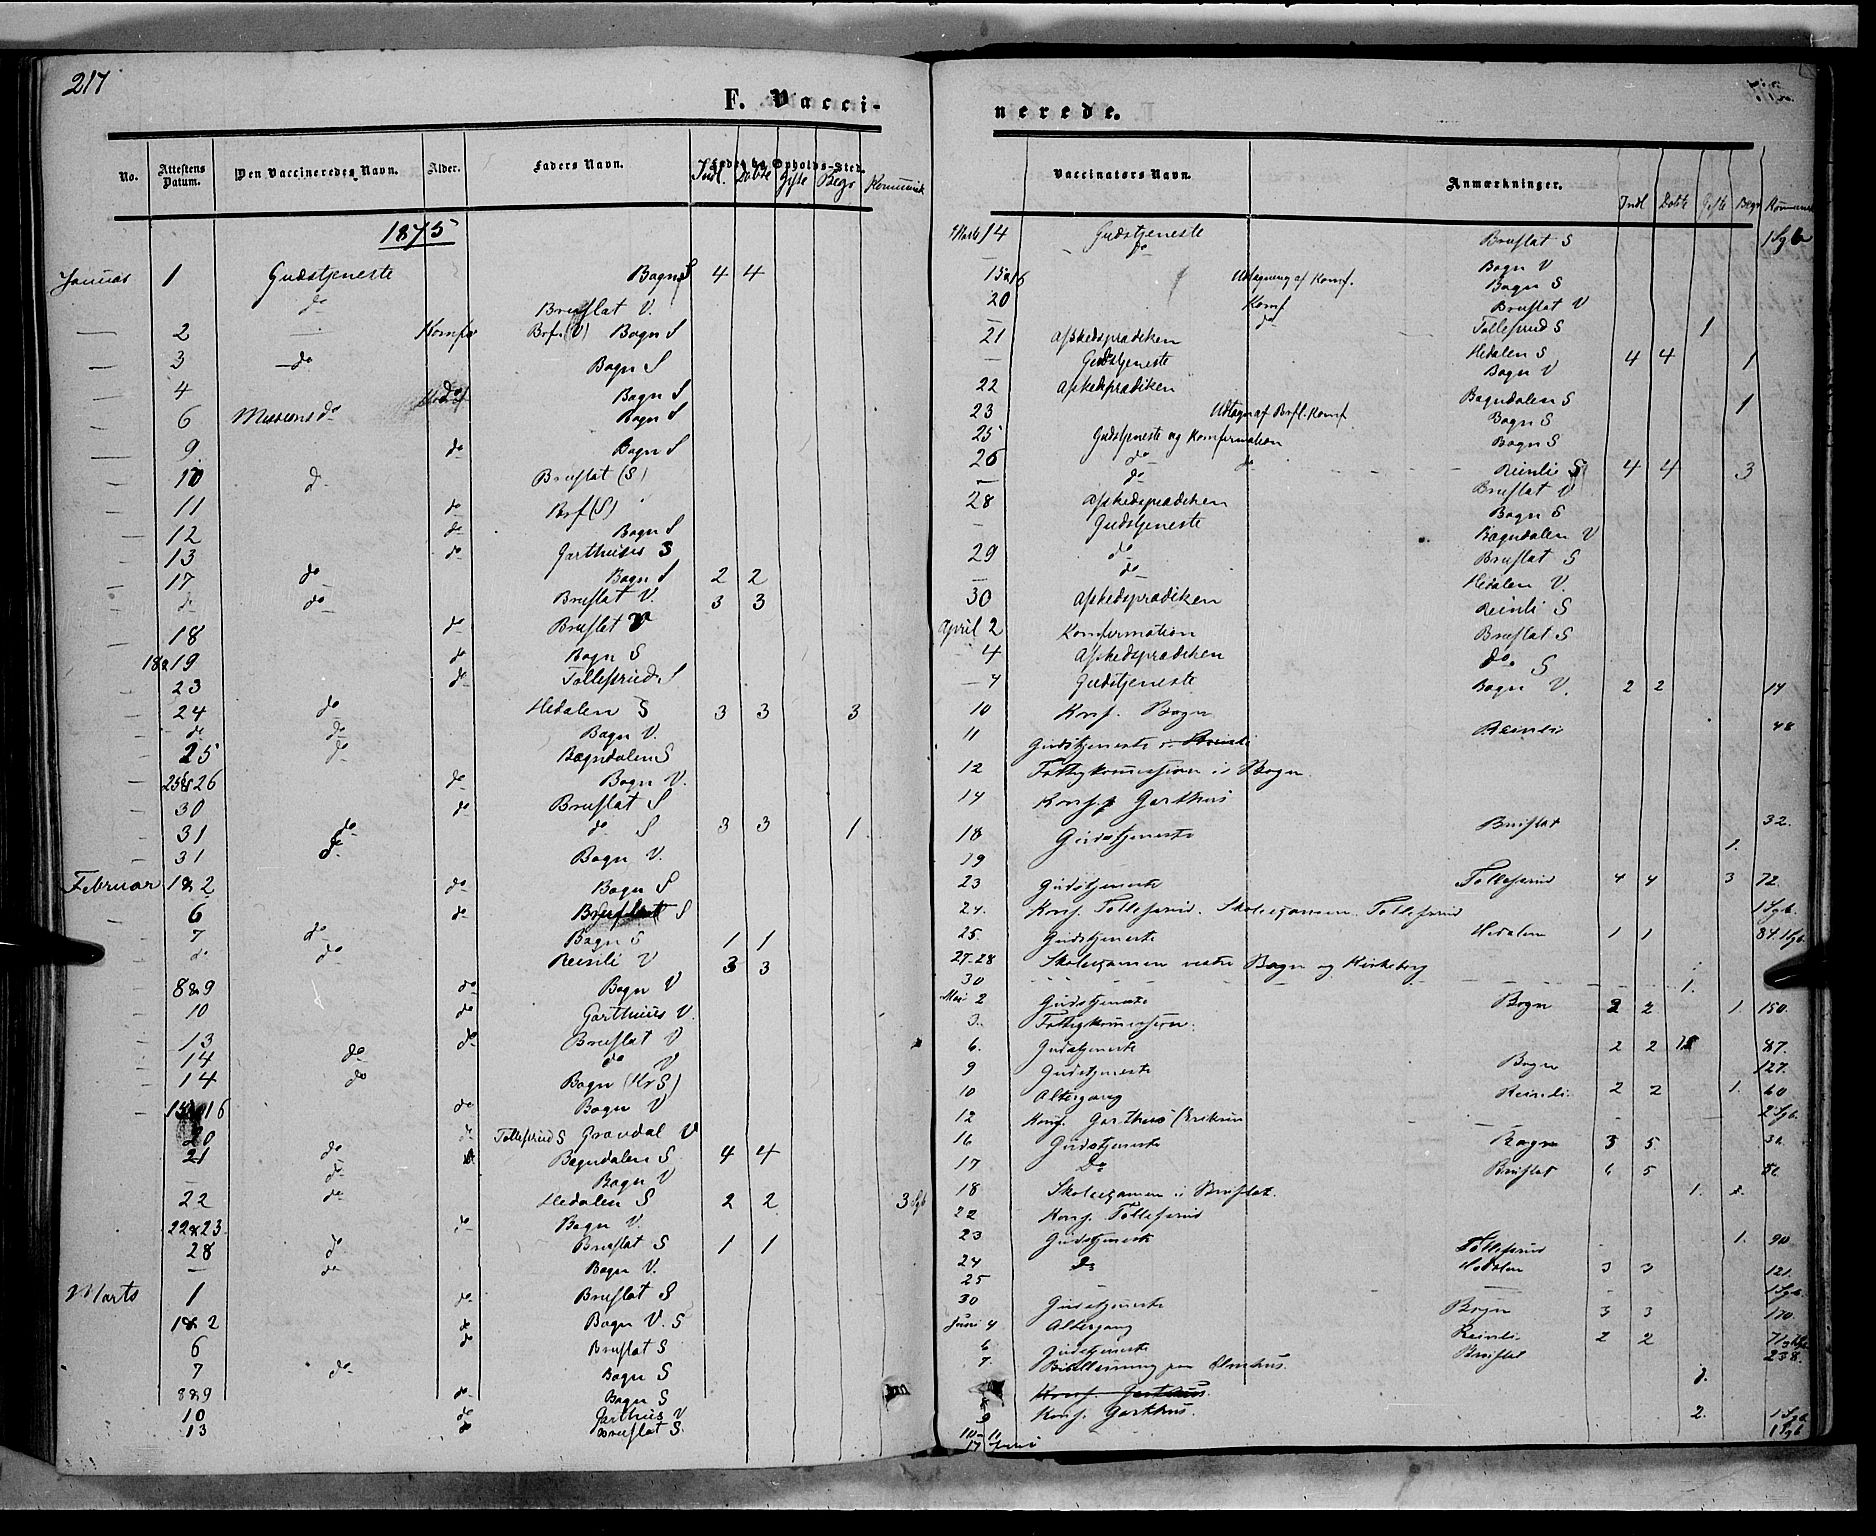 217
F. Vacci-
No. Attestens Datum. Den Vaccineredes Navn. Alder. Faders Navn. Fødes- og Opholds-Sted.
Indl. Døbte Gifte Begr Kommunik
1875
Januar 1 Gudstjeneste Bagn S 4 4
do Bruflat V.
2 Konf Brf. (V) Bagn S
3 do Bagn S
4 do Bagn S
6 Missions do Bagn S
9 do Bagn S
10 d Bruflat (S)
11 do Brf (S)
12 do Bagn S
13 do Garthuses S
17 do Bagn S 2 2
do do Bruflat V. 3 3
18 do Bruflat V
18&19 do Bagn S
23 do Tollefsrud S
24 do Hedalen S 3 3 3
do do Bagn V.
25 do Bagndalen S
25&26 do Bagn V.
30 do Bruflat S
31 do do S 3 3 1
31 do Bagn V.
Februar 1&2 do Bagn S
6 do Bruflat S
7 do Bagn S 1 1
do do Reinli V 3 3
8&9 do Bagn V
10 do Garthuus V.
13 do Bruflat V
14 do do V
14 do Bagn (Kr S)
15&16 do Bagn V
20 do Tollefsrud S Grandal V
21 do Bagndalen S 4 4
— do Bagn V
22 do Hedalen S 2 2 3 Sgb
22&23 do Bagn V.
28 do Bruflat S 1 1
— do Bagn V.
Marts 1 do Bruflat S
1&2 do Bagn V. S
6 do Bruflat S
7 do Bagn S
8&9 do Bagn S
10 do Garthus V
13 do Bruflat S.
nerede.
Vaccinatørs Navn. Anmærkninger.
Indl Døbte Gifte Begr Kommunik
Marts 14 Gudstjeneste Bruflat S 1 Sgb
— do Bagn V
15&16 Udtagning af Konf. Bagn S
20 Konf Bruflat V
21 Afskedsprædiken do Tollefsrud S 1
— Gudstjeneste Hedalen S 4 4 1
22 Afskedsprædiken Bagn V
23 Udtagn af Brfl. Konf. Bagndalen S 1
25 Gudstjeneste og Konfirmation Bagn S
26 do do Bagn S
— do Reinli S 4 4 3
28 Afskedsprædiken Bruflat V
— Gudstjeneste Bagn S
29 do Bagndalen V
— do Bruflat S
30 Afskedsprædiken Hedalen V.
April 2 Konfirmation Reinli S
4 Afskedsprædiken Bruflat S
4 Gudstjeneste do. S
Bagn V. 2 2 14
10 Konf. Bagn
11 Gudstjeneste i Reinli Reinli 48
12 Fattigkommission i Bagn.
14 Konf. p Garthus
18 Gudstjeneste Bruflat 32.
19 1.
23 Gudstjeneste Tollefsrud 4 4 3 72.
24. Konf. Tollefsrud. Skoleexamen Tollefsrud 1 Sgb.
25. Gudstjeneste Hedalen 1 1 84. 1 Sgb.
27-28 Skoleexamen vestre Bagn og Kirkeberg
30 1.
Mai 2 Gudstjeneste Bagn 2 2 1. 150.
3. Fattigkommission.
6. Gudstjeneste 2 2 87.
9 Gudstjeneste Bagn 127.
10 Altergang Reinli 2 2 1. 60
12 Konf. Garthus 2 Sgb.
16 Gudstjeneste Bagn 5
17 Do Bruflat 5
18 Skoleexamen i Bruflat. 1.
22 Konf. Tollefsrud
23 Gudstjeneste Tollefsrud 1. 90
24 Do Hedalen 3 3 121.
25 1 Sgb.
30 Gudstjeneste Bagn 3 3 170.
Juni 4 Altergang Reinli 2 2
6 Gudstjeneste Bruflat 238.
7. Bibellæsning paa Elmhus.
Konf. Garthus.
9 Konf. Garthus. 2. 1 Sgb
10-11 1 Sgb
17 Juni